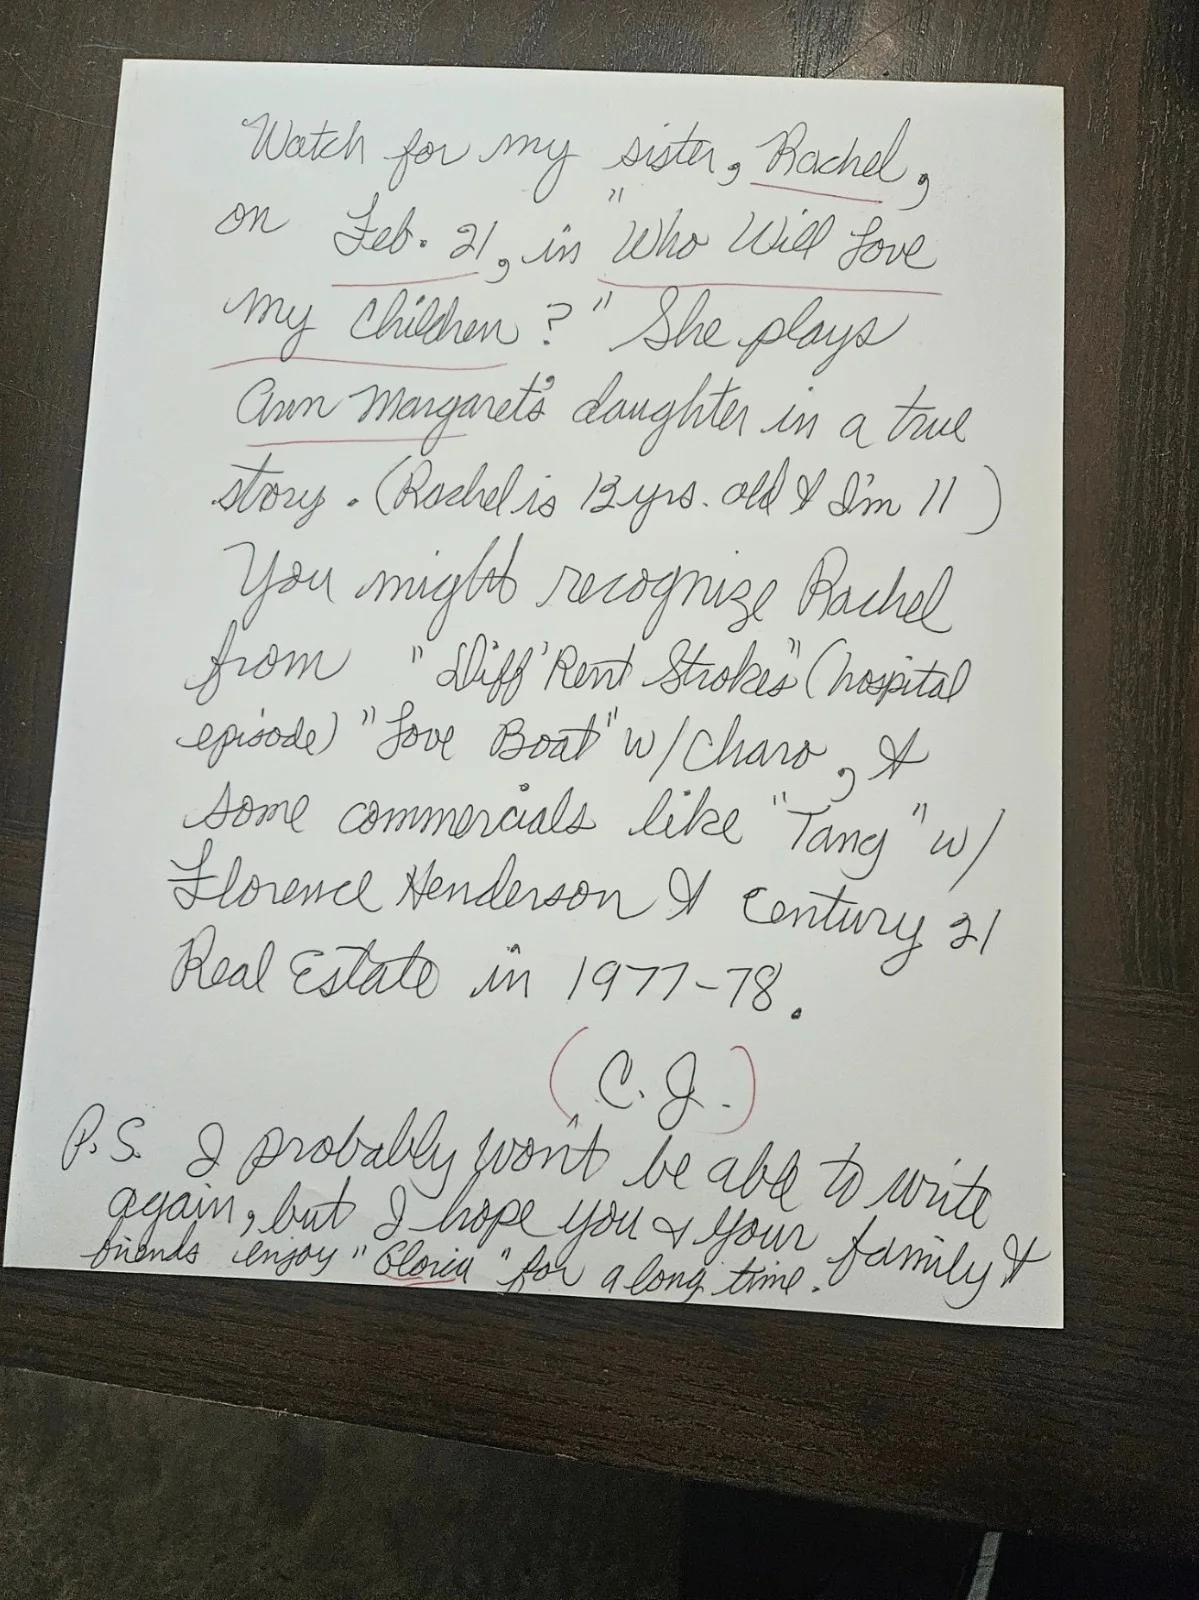 Watch for my sister, Rachel,
on Feb. 21, in "Who Will Love
My Children?" She plays
Ann Margaret's daughter in a true
story. (Rachel is 13 yrs. old & I'm 11)
You might recognize Rachel
from "Diff'Rent Strokes" (hospital
episode) "Love Boat" w/Charo, &
some commercials like "Tang" w/
Florence Henderson & Century 21
Real Estate in 1977-78.
(C.J.)
P.S. I probably won't be able to write
again, but I hope you & your family &
friends enjoy "Gloria" for a long time.